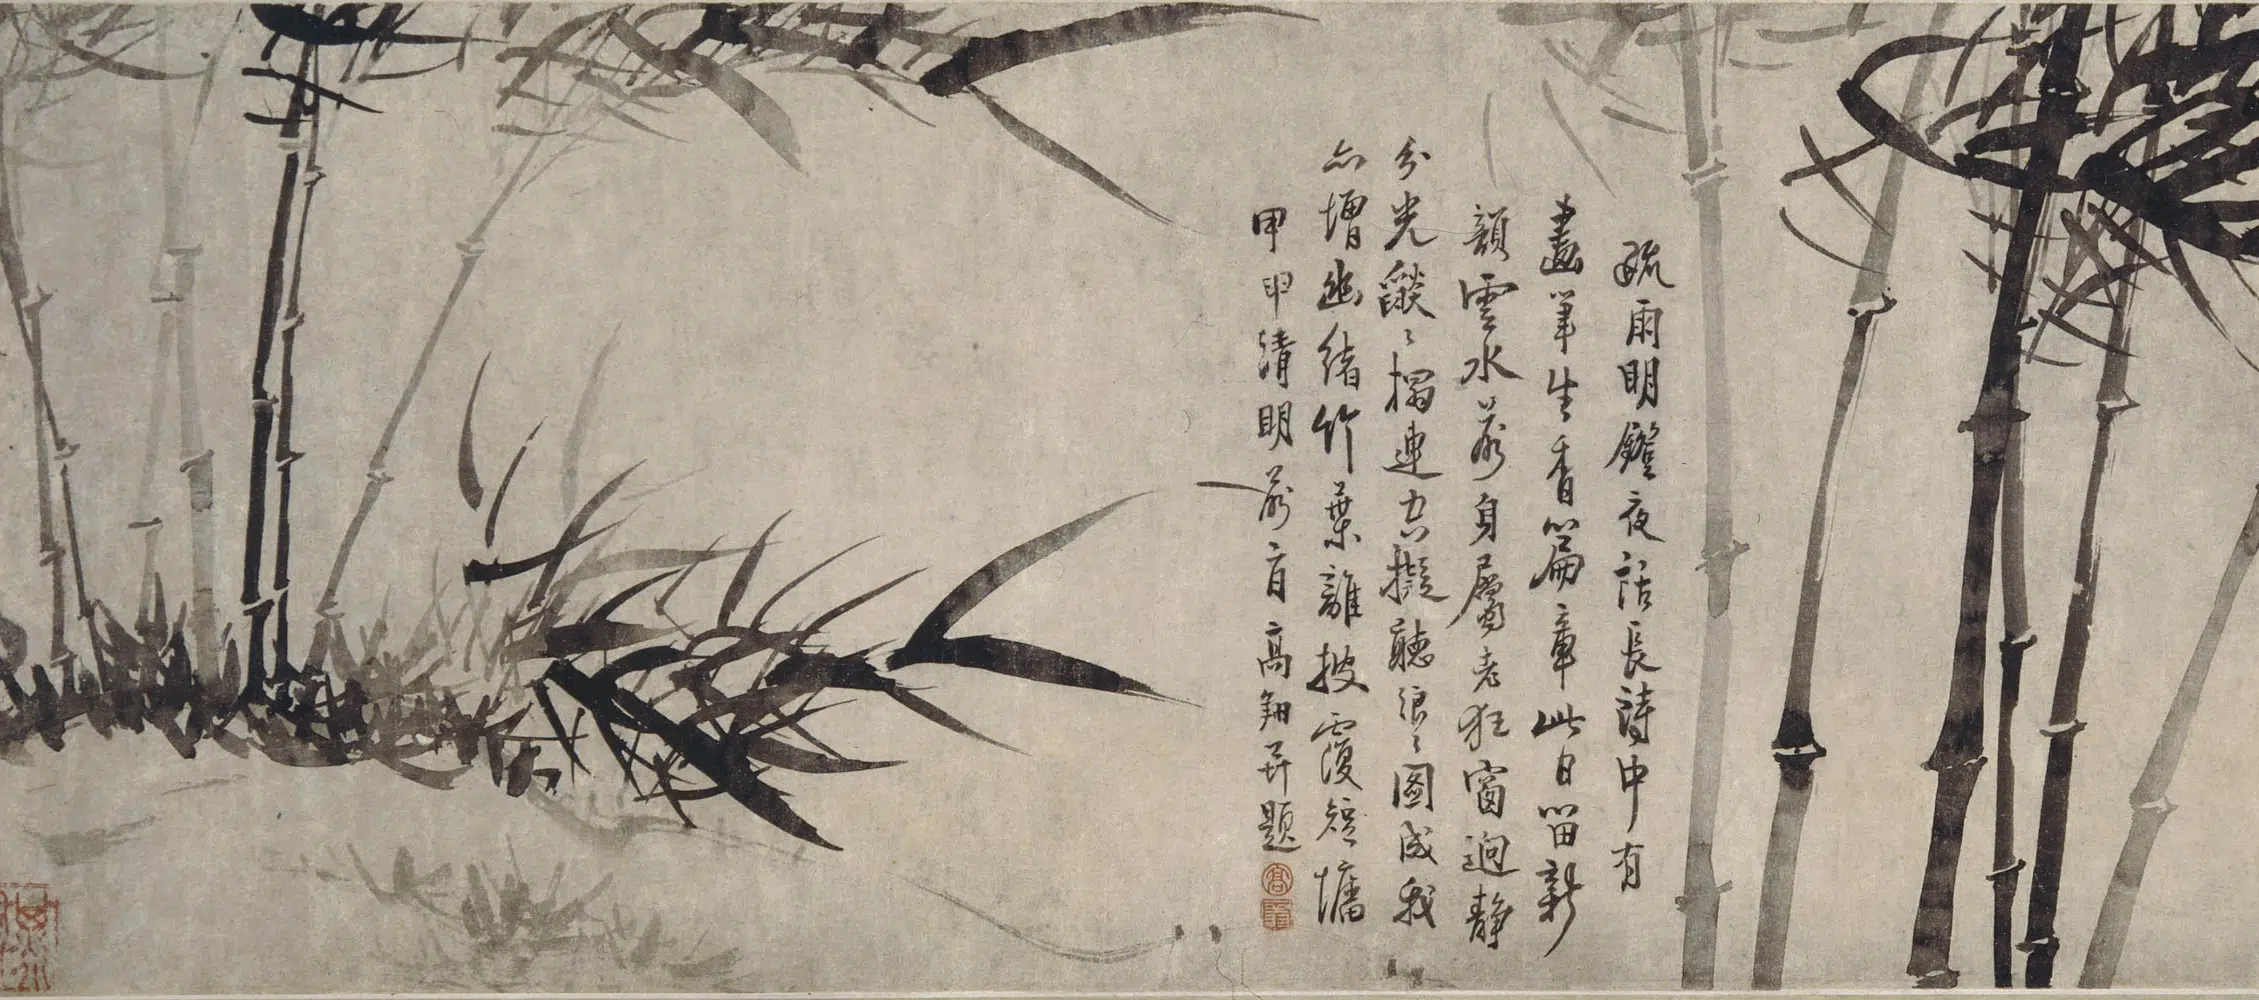 疏雨明鐙夜話長詩中有
畫筆生香篇章此日留新
韻雲水歬身屬老狂窗迥靜
分光燄〻榻連空擬聽浪〻圖成我
亦增幽緒竹葉離披覆短墉
甲申清明歬 高翔并題